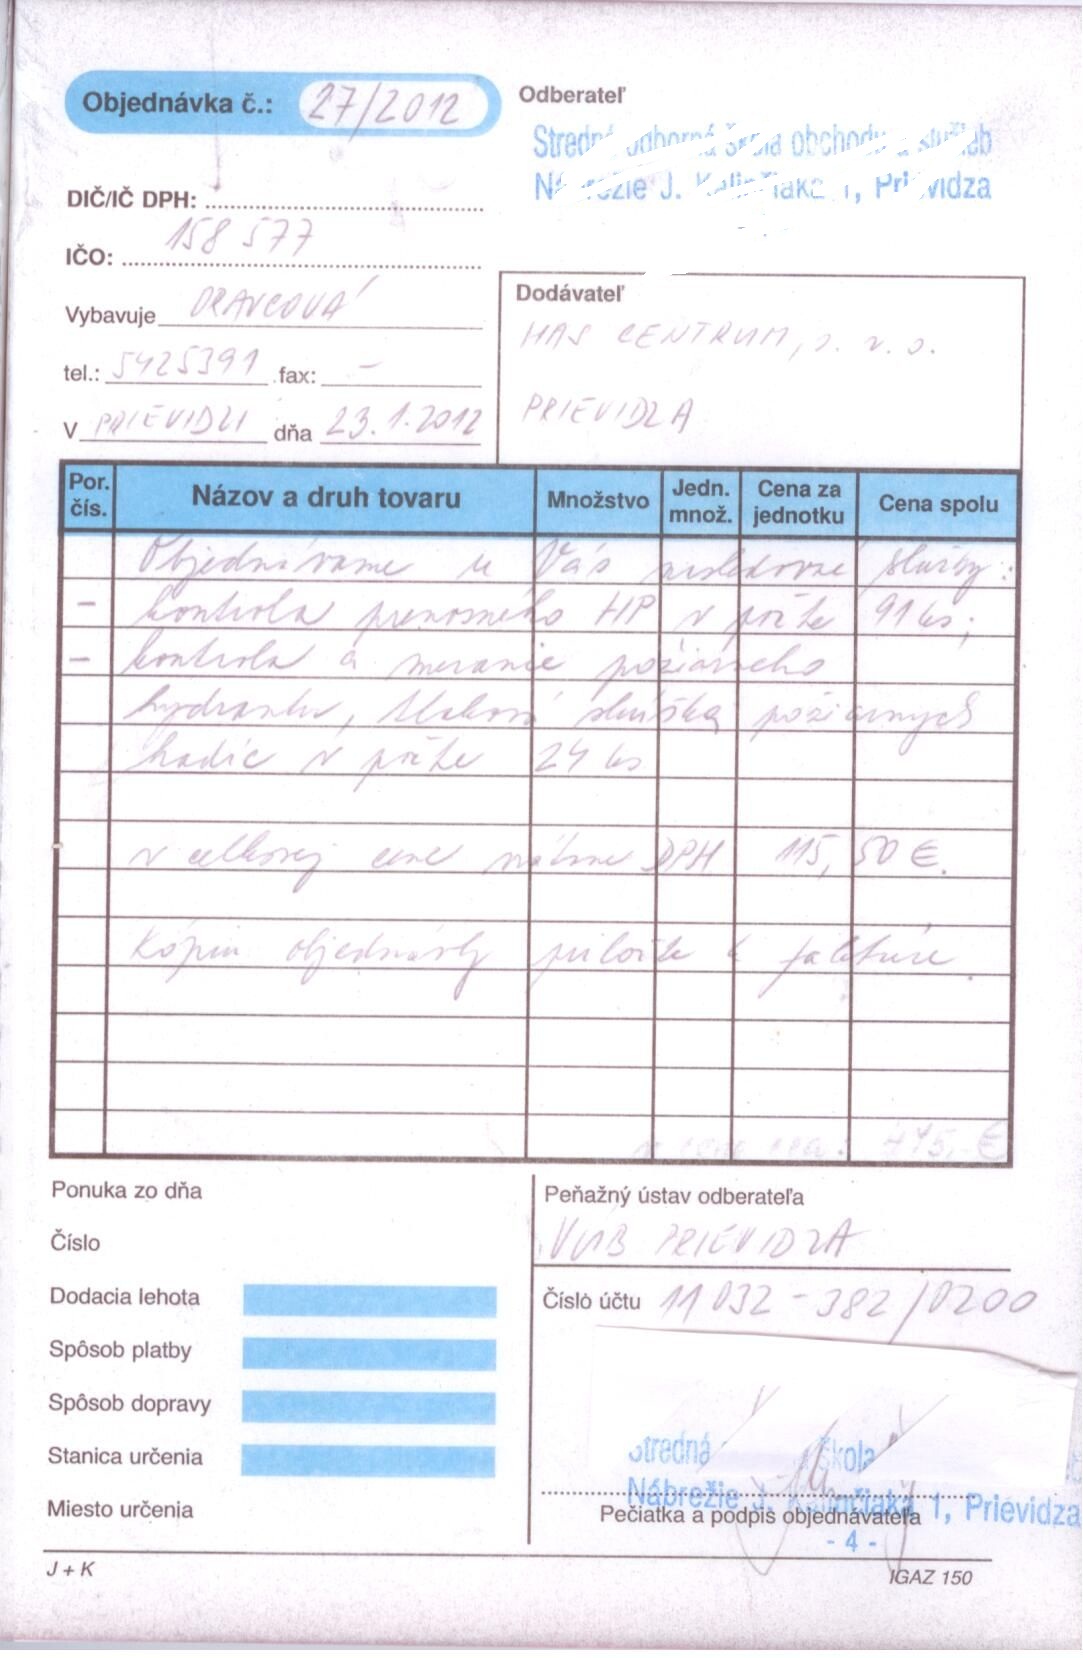 Objednávka č.: 27/2012
Odberateľ
Stredná odborná škola obchodu a služieb
Nábrežie J. Kalinčiaka 1, Prievidza
DIČ/IČ DPH:
IČO: 158 577
Vybavuje ORAVCOVÁ
tel.: 5425391 fax: –
V PRIEVIDZI dňa 23.1.2012
Dodávateľ
HAS CENTRUM, s. r. o.
PRIEVIDZA
Por. čís. Názov a druh tovaru Množstvo Jedn. množ. Cena za jednotku Cena spolu
Objednávame u Vás nasledovné služby:
– kontrola prenosného HP v počte 91 ks,
– kontrola a meranie požiarneho
hydrantu, tlaková skúška požiarnych
hadíc v počte 24 ks
v celkovej cene vrátane DPH 115,50 €.
Kópiu objednávky priložte k faktúre.
v cene cca: 475,-€
Ponuka zo dňa
Číslo
Dodacia lehota
Spôsob platby
Spôsob dopravy
Stanica určenia
Miesto určenia
Peňažný ústav odberateľa
VÚB PRIEVIDZA
Číslo účtu 11032-382/0200
Stredná škola
Nábrežie J. Kalinčiaka 1, Prievidza
Pečiatka a podpis objednávateľa
- 4 -
J + K
IGAZ 150